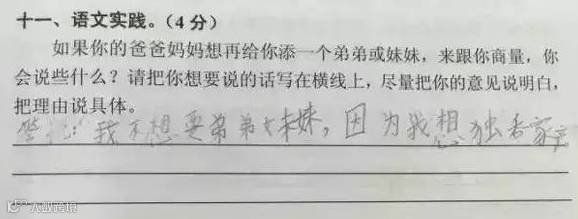 十一、语文实践。(4分)
如果你的爸爸妈妈想再给你添一个弟弟或妹妹，来跟你商量，你
会说些什么？请把你想要说的话写在横线上，尽量把你的意见说明白，
把理由说具体。
我不想要弟弟妹妹，因为我想独吞家产
大数跨境